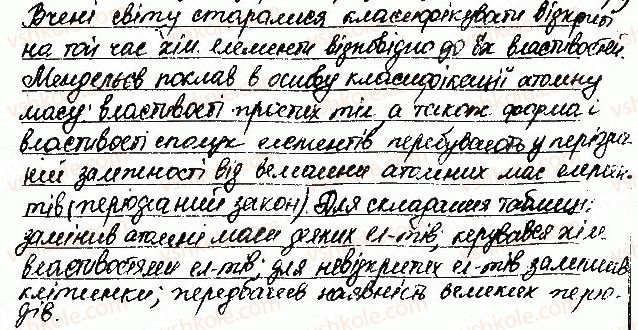 Вчені світу старалися класифікувати відкриті
на той час хім. елементи відповідно до їх властивостей.
Менделєєв поклав в основу класифікації атомну
масу: властивості простих тіл, а також форма і
властивості сполук елементів перебувають у періодич-
ній залежності від величини атомних мас елемен-
тів (періодичний закон) Для складання таблиці:
замінив атомні маси деяких ел-тів, керувався хім.
властивостями ел-тів; для невідкритих ел-тів залишив
клітинки; передбачив наявність великих періо-
дів.